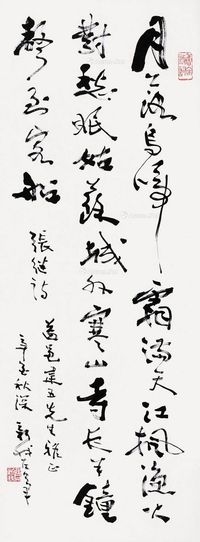 月落烏啼霜滿天江楓漁火
對愁眠姑蘇城外寒山寺夜半鐘
聲到客船
張继詩
先生雅正
秋深